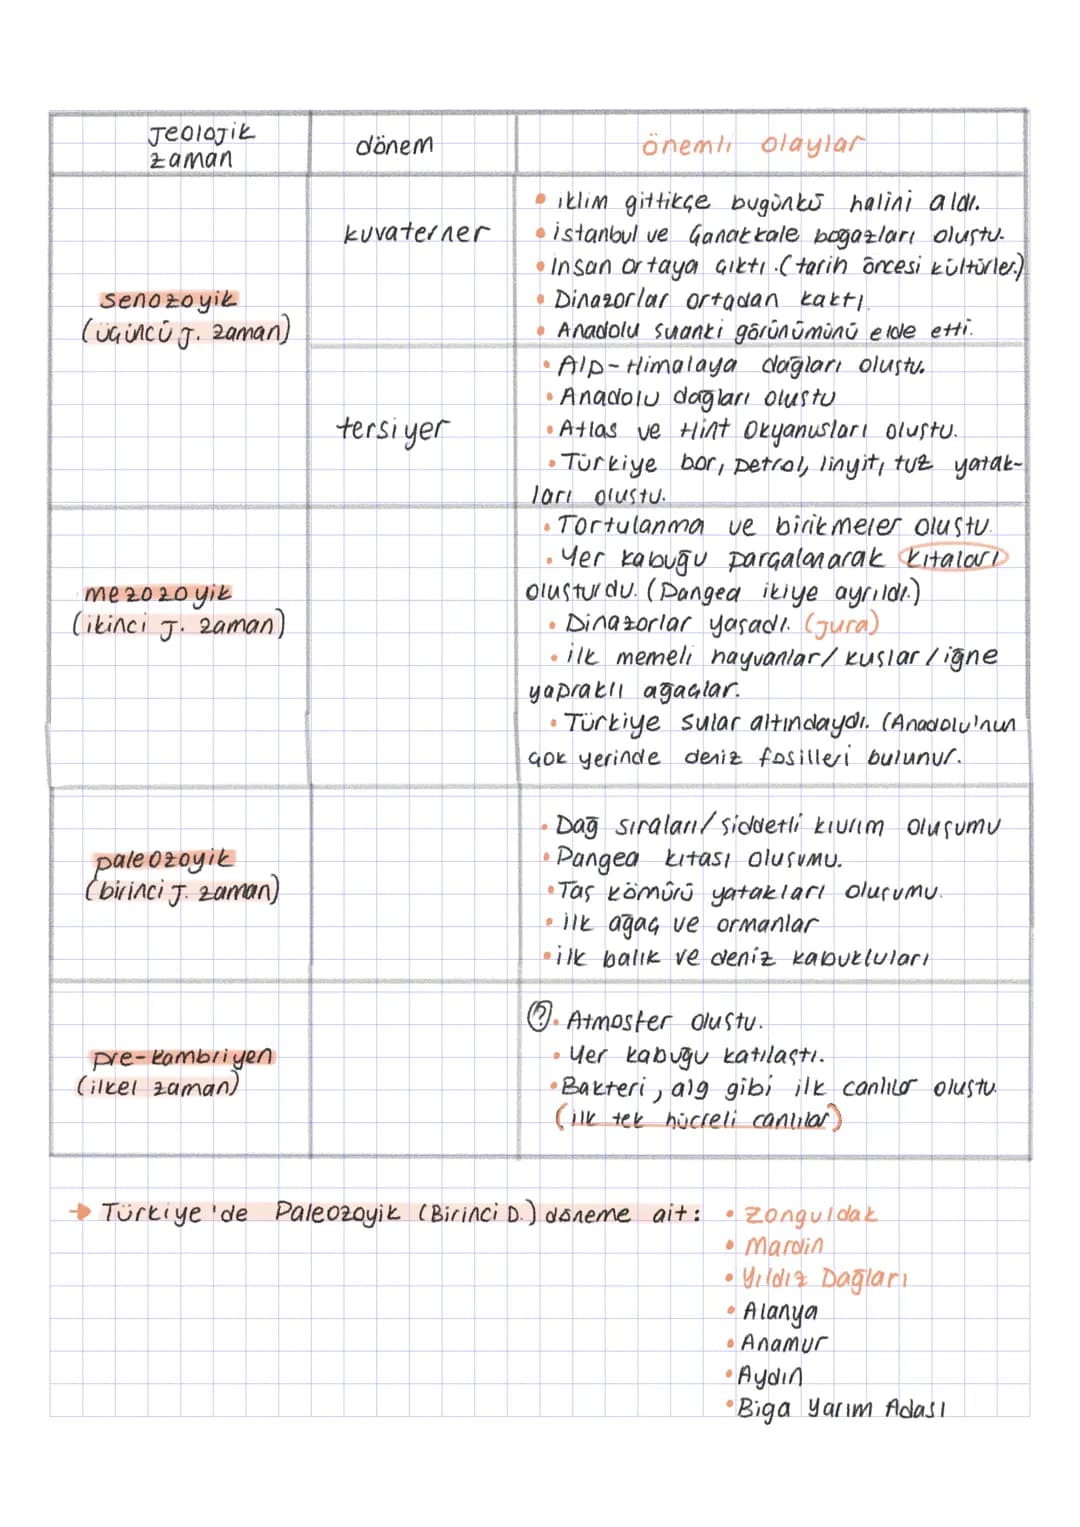 Jeolojik
zaman
dönem
önemli olaylar
senozoyik
(üçüncü J. zaman)
kuvaterner
• iklim gittikçe bugünkü halini aldı.
• istanbul ve Çanakkale boğazları oluştu.
• insan ortaya çıktı.(tarih öncesi kültürler.)
• Dinazorlar ortadan kaktı.
• Anadolu şuanki görünümünü elde etti.
tersiyer
• Alp-Himalaya dağları oluştu.
• Anadolu dağları oluştu
• Atlas ve Hint Okyanusları oluştu.
• Türkiye bor, petrol, linyit, tuz yatak-
ları oluştu.
mezozoyik
(ikinci J. zaman)
• Tortulanma ve birikmeler oluştu.
• Yer kabuğu parçalanarak kıtaları
oluşturdu. (Pangea ikiye ayrıldı.)
• Dinazorlar yaşadı. (Jura)
• ilk memeli hayvanlar/kuşlar/iğne
yapraklı ağaçlar.
• Türkiye sular altındaydı. (Anadolu'nun
çok yerinde deniz fosilleri bulunur.
paleozoyik
(birinci J. zaman)
• Dağ sıraları/şiddetli kıvrım oluşumu
• Pangea kıtası oluşumu.
• Taş kömürü yatakları oluşumu.
• ilk ağaç ve ormanlar
• ilk balık ve deniz kabukluları
pre-kambriyen
(ilkel zaman)
?. Atmosfer oluştu.
• Yer kabuğu katılaştı.
• Bakteri, alg gibi ilk canlılar oluştu.
(ilk tek hücreli canlılar)
→ Türkiye'de Paleozoyik (Birinci D.) döneme ait: • Zonguldak
• Mardin
• Yıldız Dağları
• Alanya
• Anamur
• Aydın
• Biga Yarım Adası